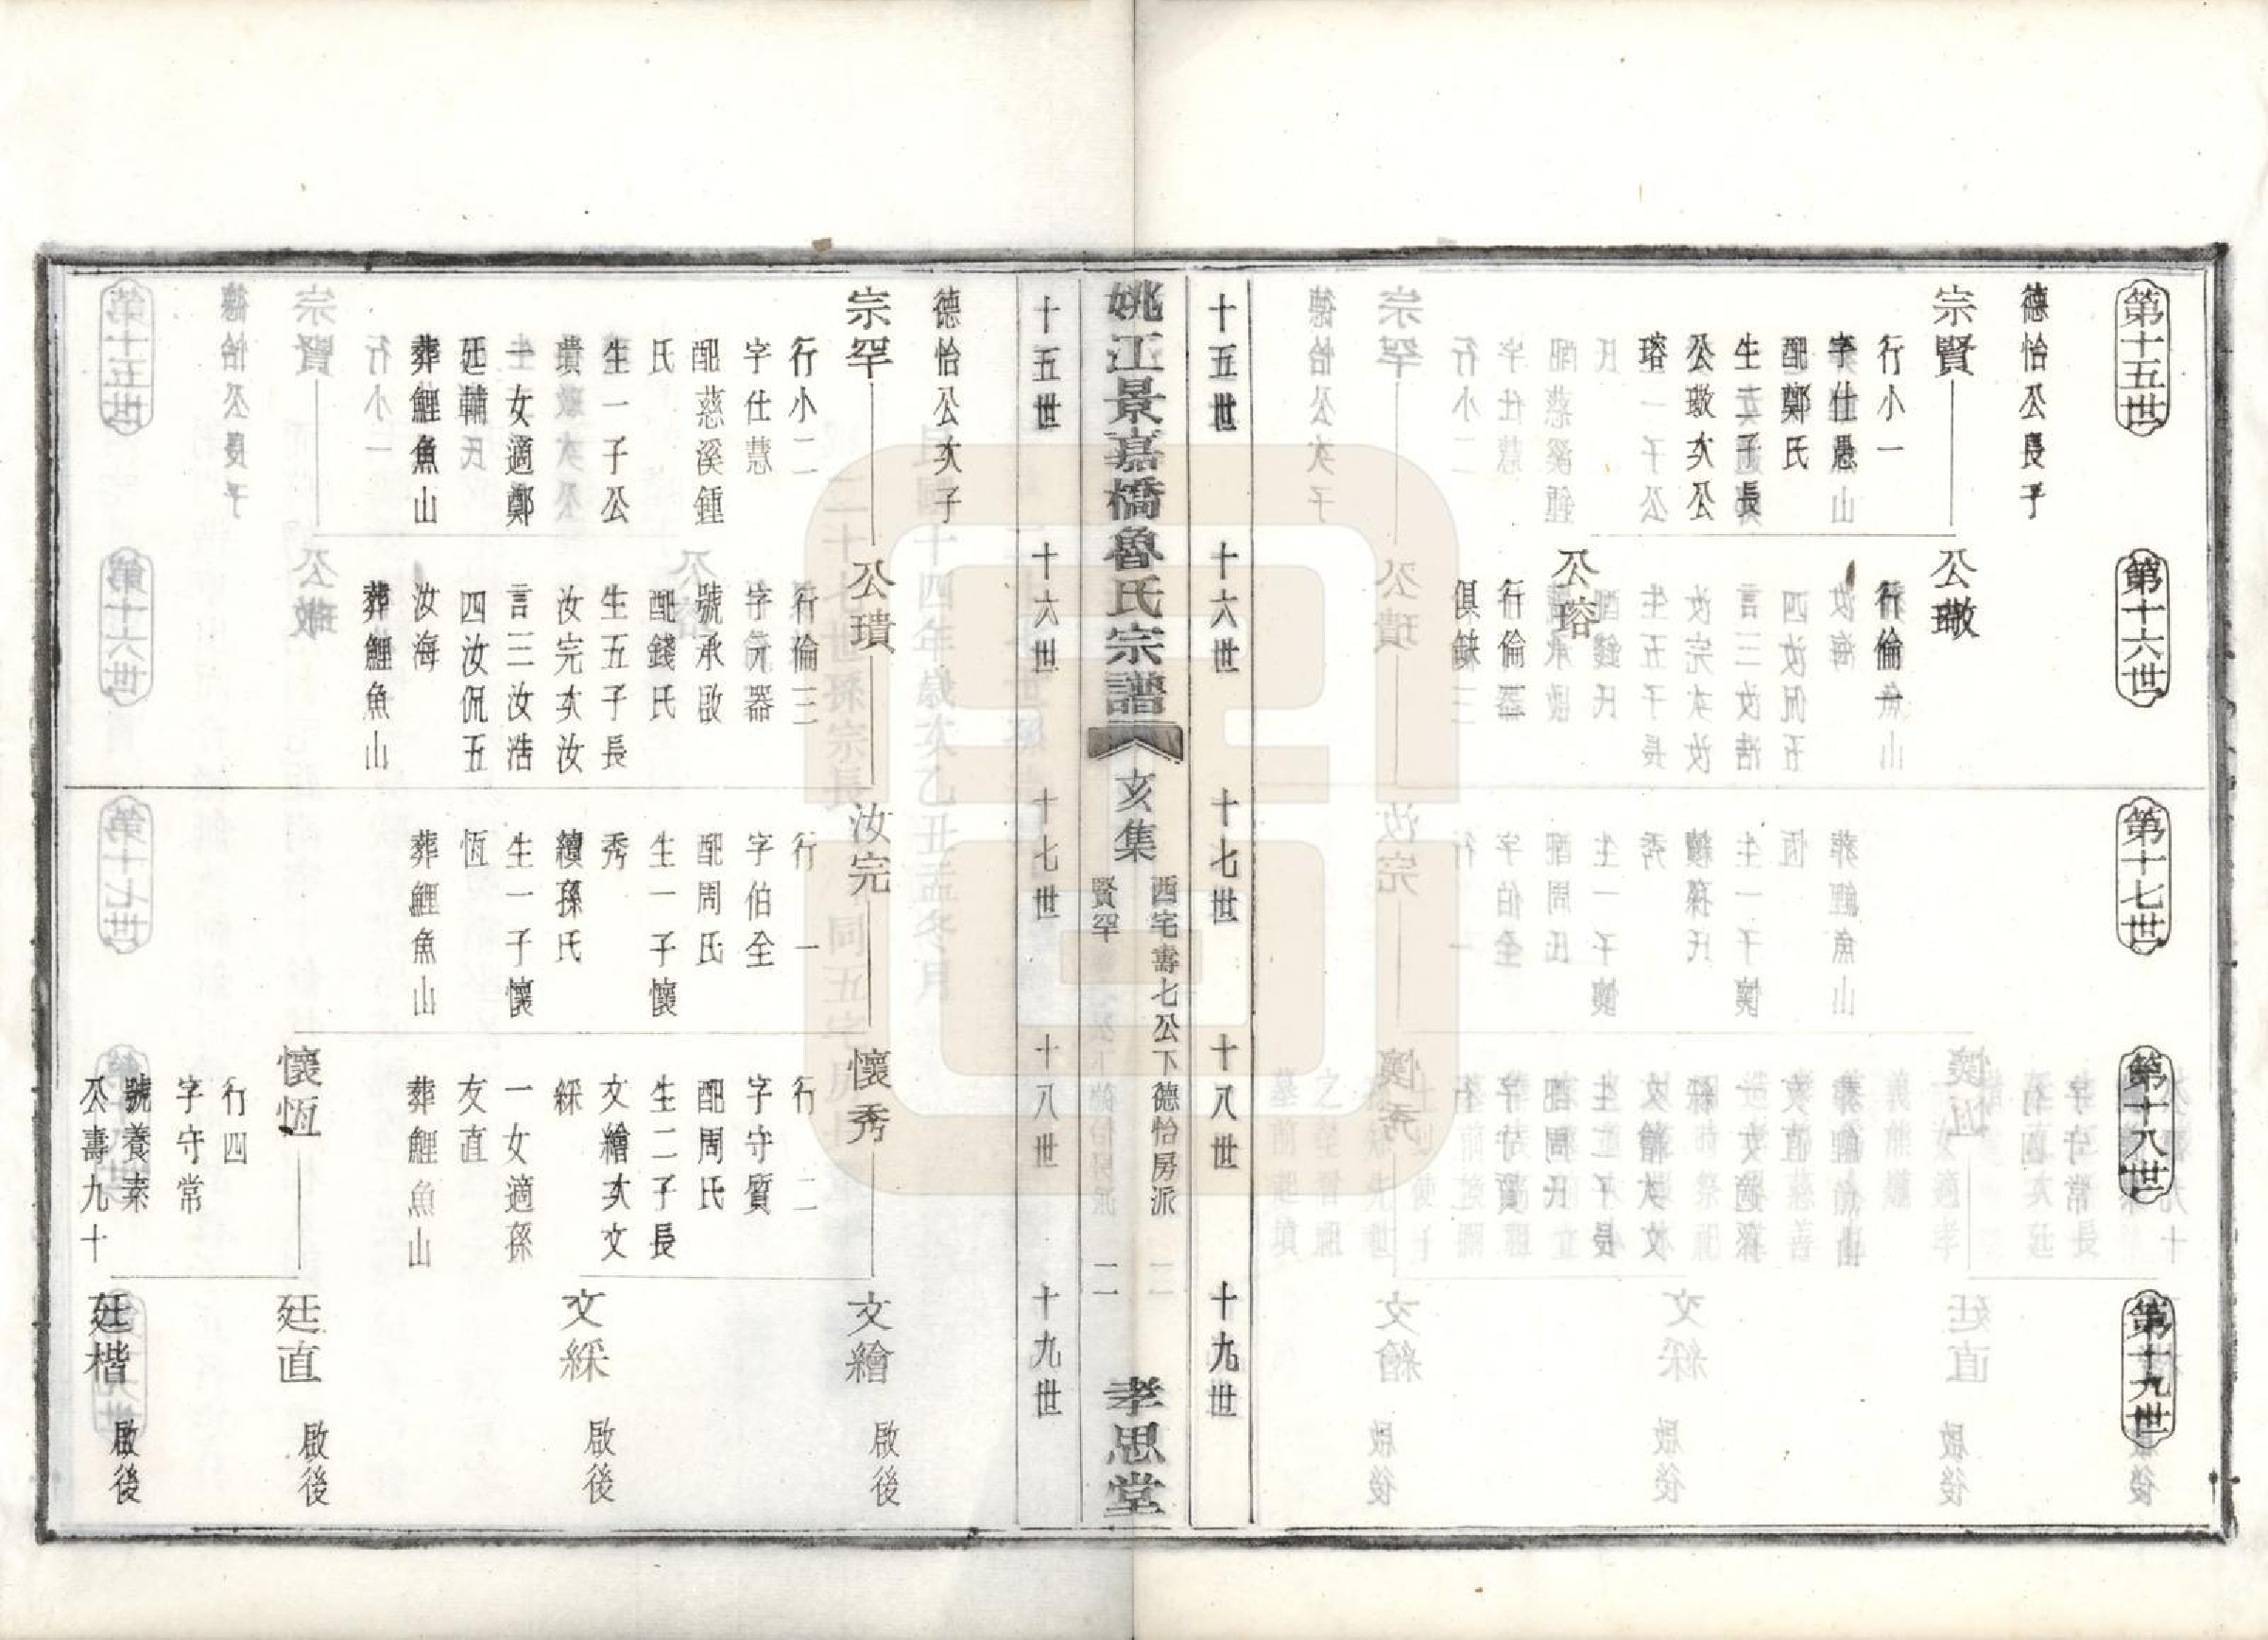 第十五世
第十六世
第十七世
第十八世
第十九世
德怡公長子
宗賢
行小一
字仕愚
配鄭氏
生二子長
公璥次公
瑢
公璥
行倫一
公瑢
行倫二
俱缺
十五世
十六世
十七世
十八世
十九世
姚江景嘉橋魯氏宗譜
亥集
酉宅壽七公下德怡房派
賢罕
二
孝思堂
十五世
十六世
十七世
十八世
十九世
德怡公次子
宗罕
行小二
字仕慧
配慈溪鍾
氏
生一子公
璝
一女適鄭
廷輔
葬鯉魚山
公璝
行倫三
字元器
號承啟
配錢氏
生五子長
汝完次汝
言三汝浩
四汝侃五
汝海
葬鯉魚山
汝完
行一
字伯全
配周氏
生一子懷
秀
續孫氏
生一子懷
恆
葬鯉魚山
懷秀
行二
字守質
配周氏
生二子長
文繪次文
綵
一女適孫
友直
葬鯉魚山
文繪
啟後
文綵
啟後
懷恆
行四
字守常
號養素
公壽九十
廷直
啟後
廷楷
啟後